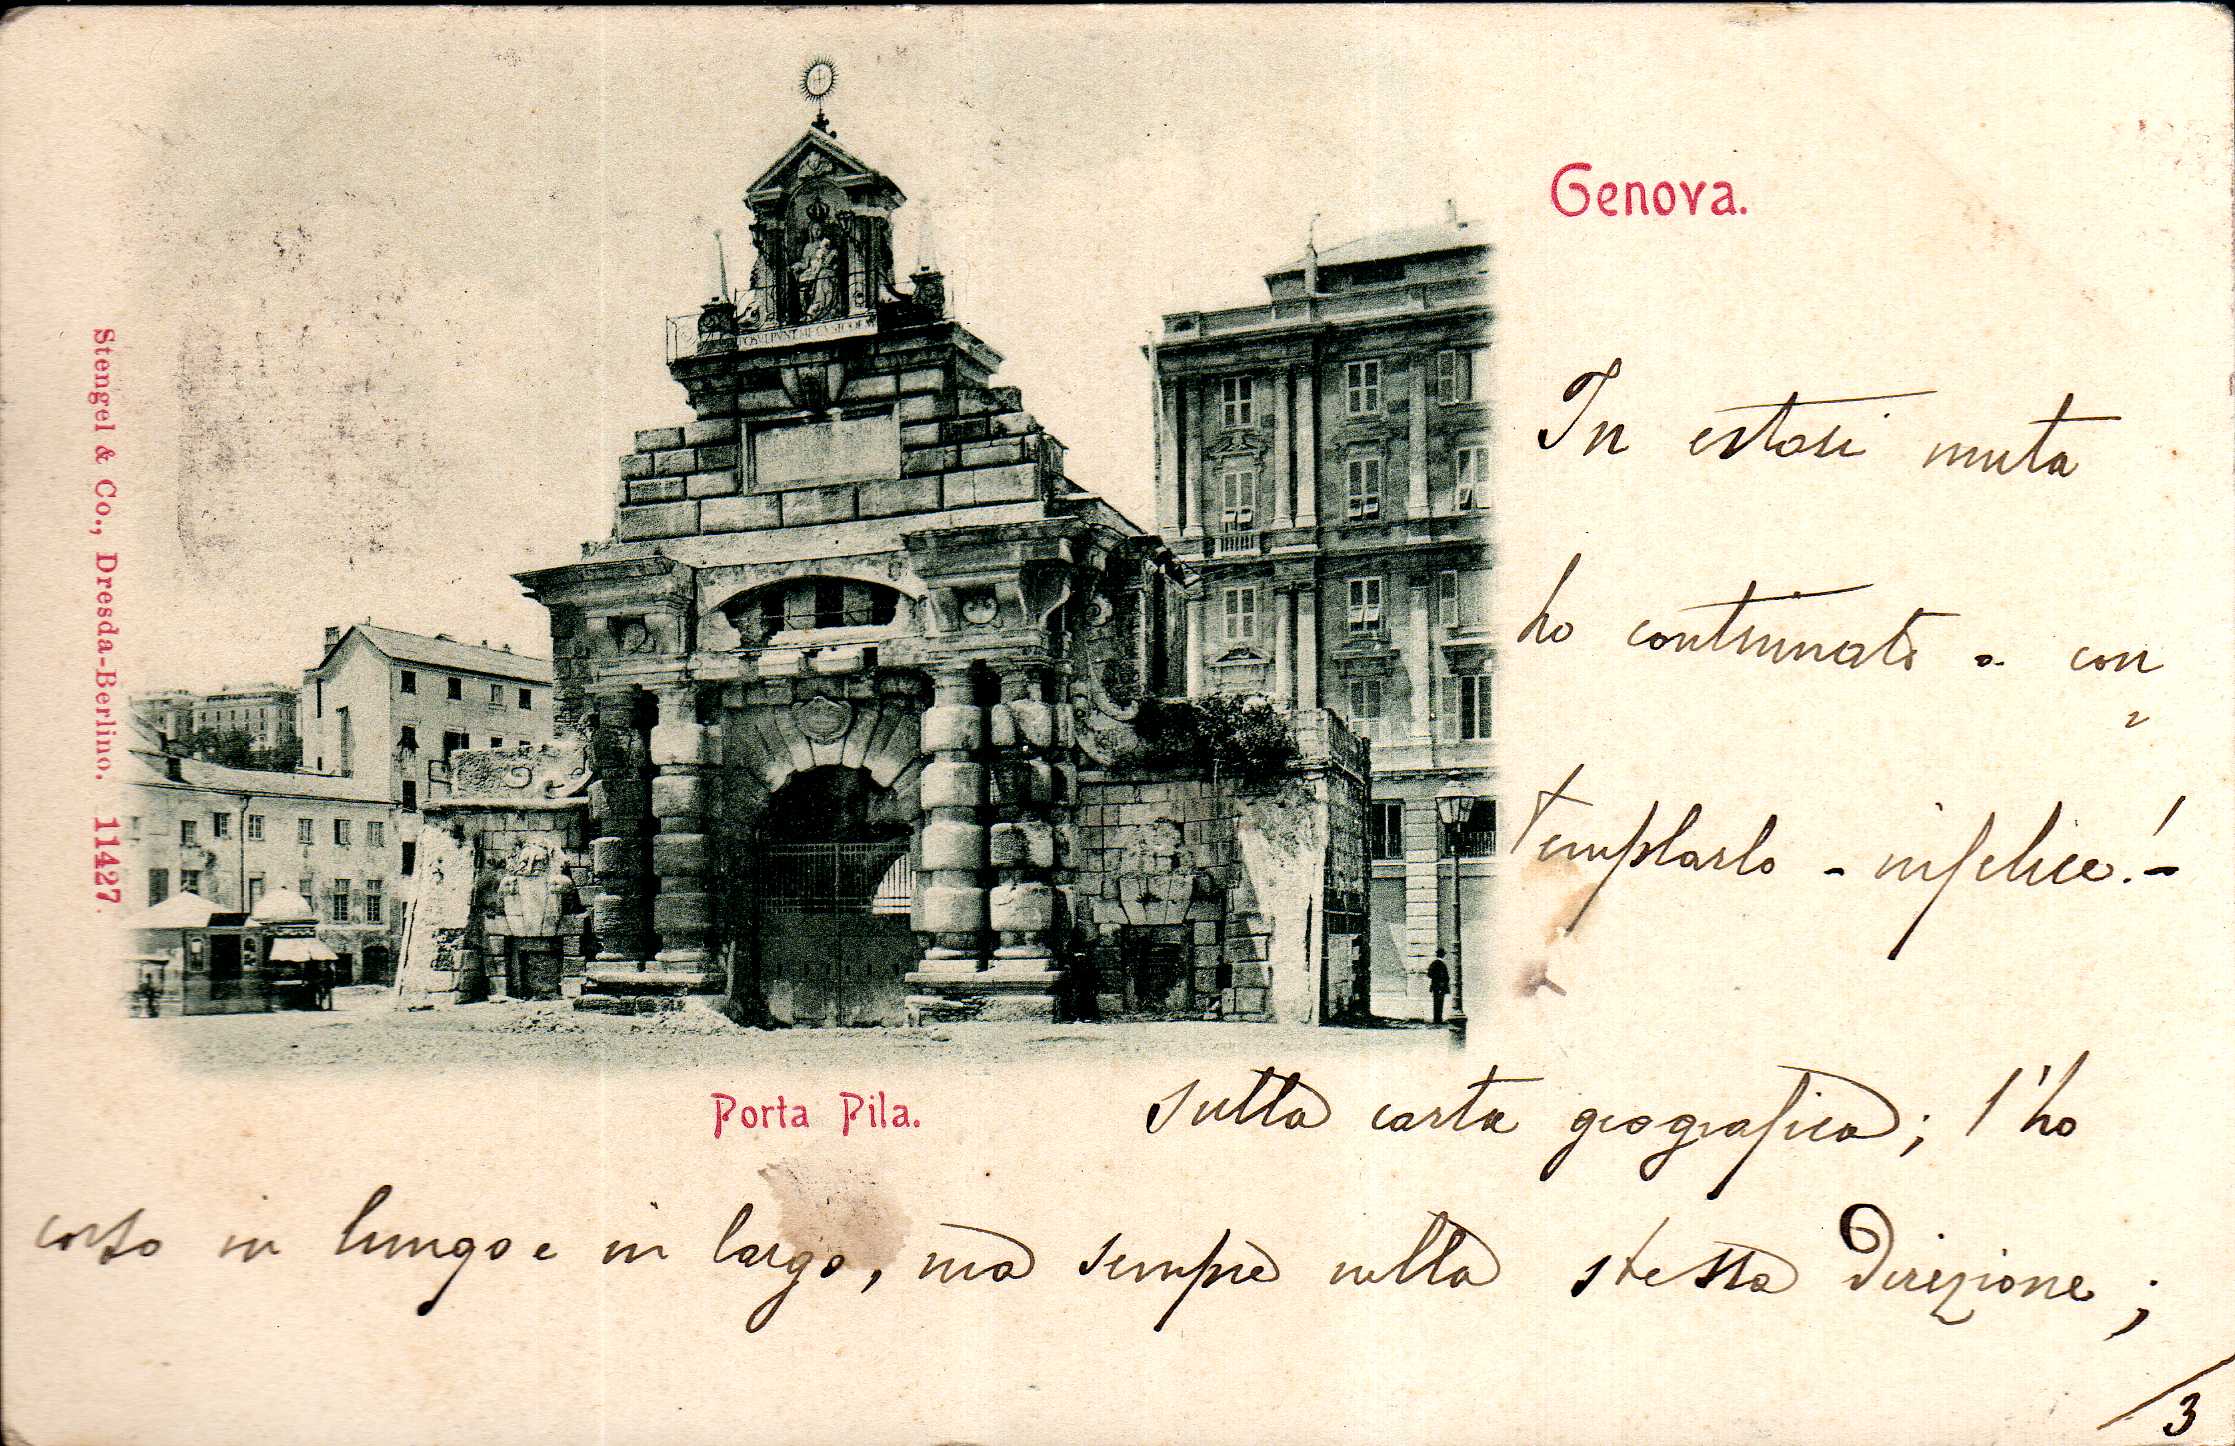 Genova.
In estasi muta
ho continuato a con
templarlo - infelice! -
sulla carta geografica; l'ho
corso in lungo e in largo, ma sempre nella stessa direzione;
/3
Porta Pila.
Stengel & Co., Dresda-Berlino. 11427.